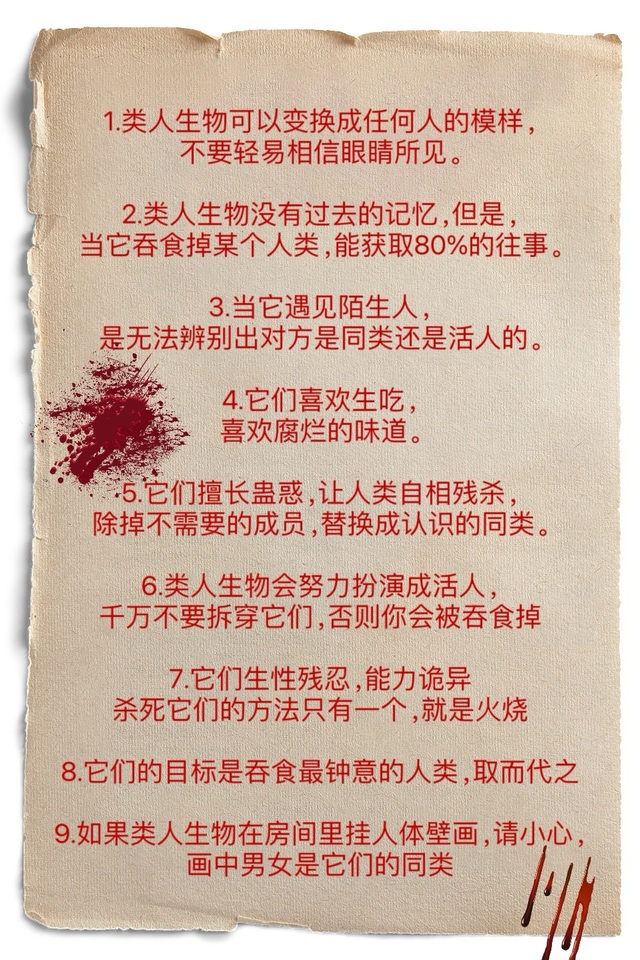 1.类人生物可以变换成任何人的模样，
不要轻易相信眼睛所见。
2.类人生物没有过去的记忆，但是，
当它吞食掉某个人类，能获取80%的往事。
3.当它遇见陌生人，
是无法辨别出对方是同类还是活人的。
4.它们喜欢生吃，
喜欢腐烂的味道。
5.它们擅长蛊惑，让人类自相残杀，
除掉不需要的成员，替换成认识的同类。
6.类人生物会努力扮演成活人，
千万不要拆穿它们，否则你会被吞食掉
7.它们生性残忍，能力诡异
杀死它们的方法只有一个，就是火烧
8.它们的目标是吞食最钟意的人类，取而代之
9.如果类人生物在房间里挂人体壁画，请小心，
画中男女是它们的同类